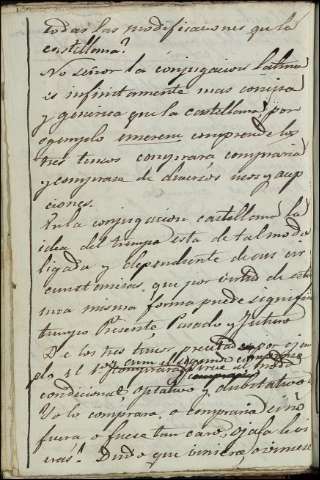 todas las modificaciones que la
castellana?
No señor la conjugacion latina
es infinitamente mas concisa
y generica que la castellana por
egemplo emerem comprende los
tres tiempos comprara compraria
y comprase de diversos usos y acep
ciones.
En la conjugacion castellana la
idea del tiempo esta de tal modo
ligada y dependiente de sus cir
cunstancias, que por virtud de esto
una misma forma puede significar
tiempo Presente Pasado y Futuro
De los tres precitados por ejem
plo el 1º comprara sirve al modo
condicional, optativo y dubitativo
Yo lo comprara, o compraria si no
fuera o fuese tan caro, ojala lo vi
eras! Dudo que viniera, o viniese